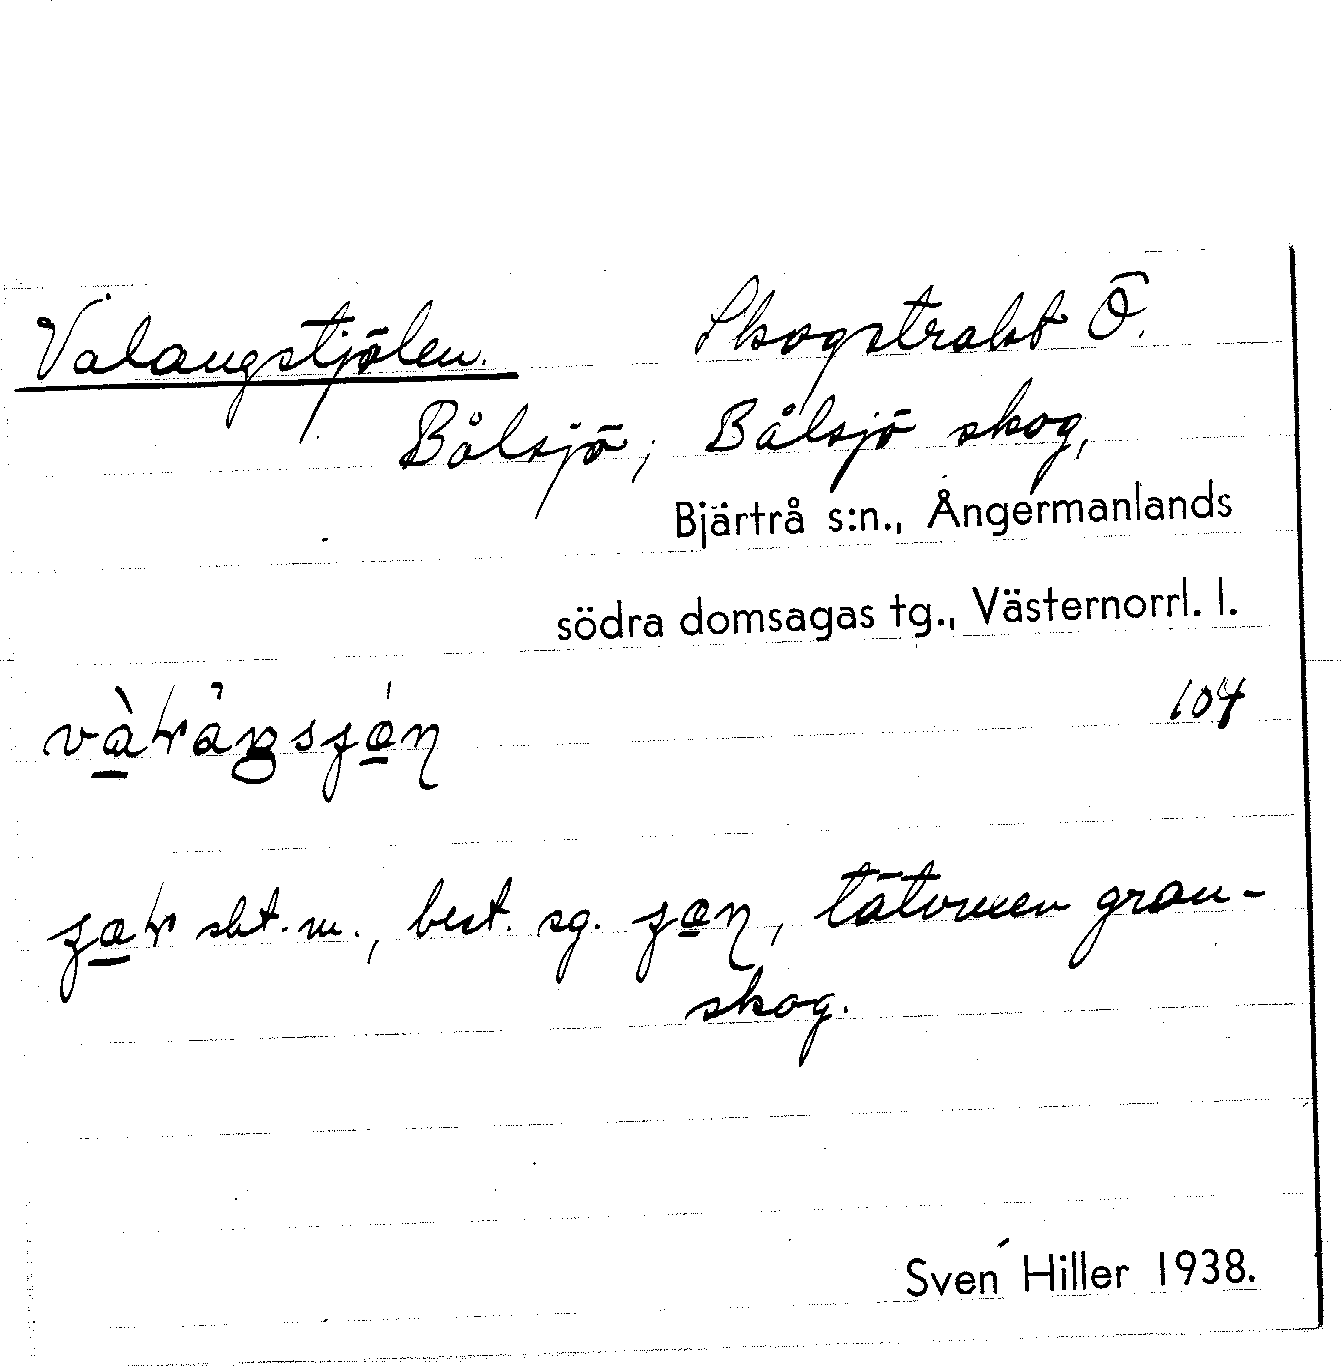 Valangstjölen. Skogstrakt Ö.
Bålsjö; Bålsjö skog,
Bjärtrå s:n., Ångermanlands
södra domsagas tg., Västernorrl. l.
104
sbt. m., best. sg. tätvuxen gran-
skog.
Sven Hiller 1938.